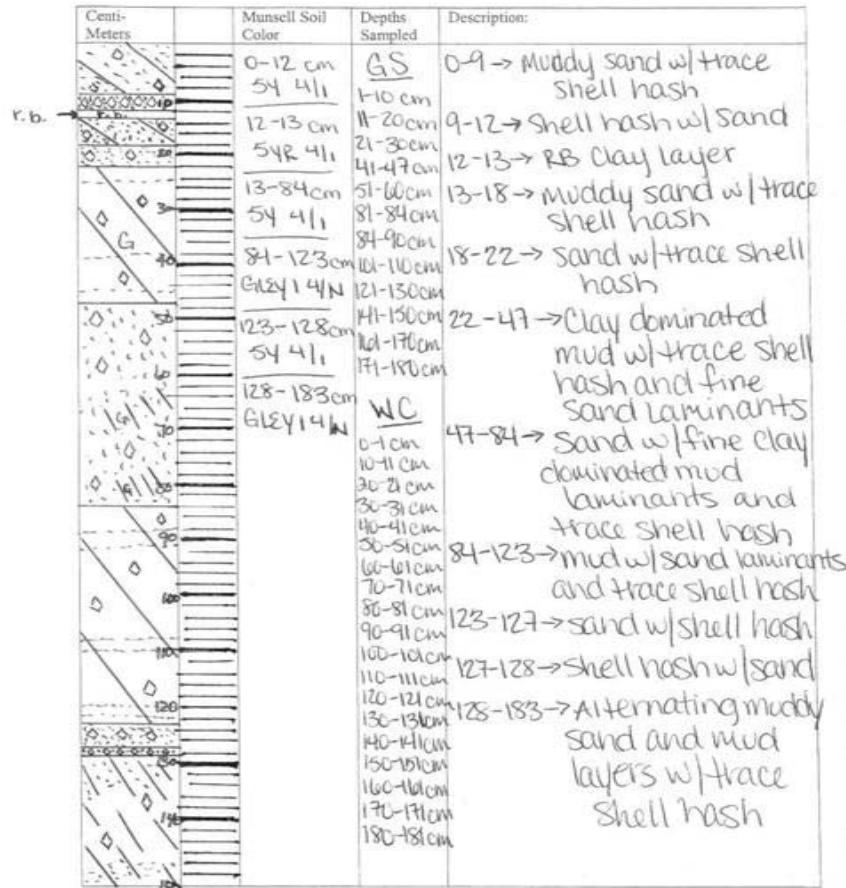 Centi-
Meters
Munsell Soil
Color
Depths
Sampled
Description:
r.b. →
r.b.
S
10
20
30
G
40
50
60
G
70
G 80
90
100
110
120
130
140
0-12 cm
5Y 4/1
12-13 cm
5YR 4/1
13-84cm
5Y 4/1
84-123cm
GLEY1 4/N
123-128cm
5Y 4/1
128-183cm
GLEY1 4/N
GS
1-10 cm
11-20cm
21-30cm
41-47cm
51-60cm
81-84cm
84-90cm
101-110cm
121-130cm
141-150cm
161-170cm
171-180cm
WC
0-1 cm
10-11 cm
20-21 cm
30-31cm
40-41cm
50-51cm
60-61cm
70-71cm
80-81cm
90-91cm
100-101cm
110-111cm
120-121cm
130-131cm
140-141cm
150-151cm
160-161cm
170-171cm
180-181cm
0-9 → Muddy sand w/trace
shell hash
9-12 → Shell hash w/ Sand
12-13 → RB Clay layer
13-18 → Muddy sand w/trace
shell hash
18-22 → Sand w/trace shell
hash
22-47 → Clay dominated
mud w/trace shell
hash and fine
Sand Laminants
47-84 → Sand w/fine clay
dominated mud
laminants and
trace shell hash
84-123 → mud w/sand laminants
and trace shell hash
123-127 → sand w/shell hash
127-128 → Shell hash w/sand
128-183 → Alternating muddy
sand and mud
layers w/trace
shell hash